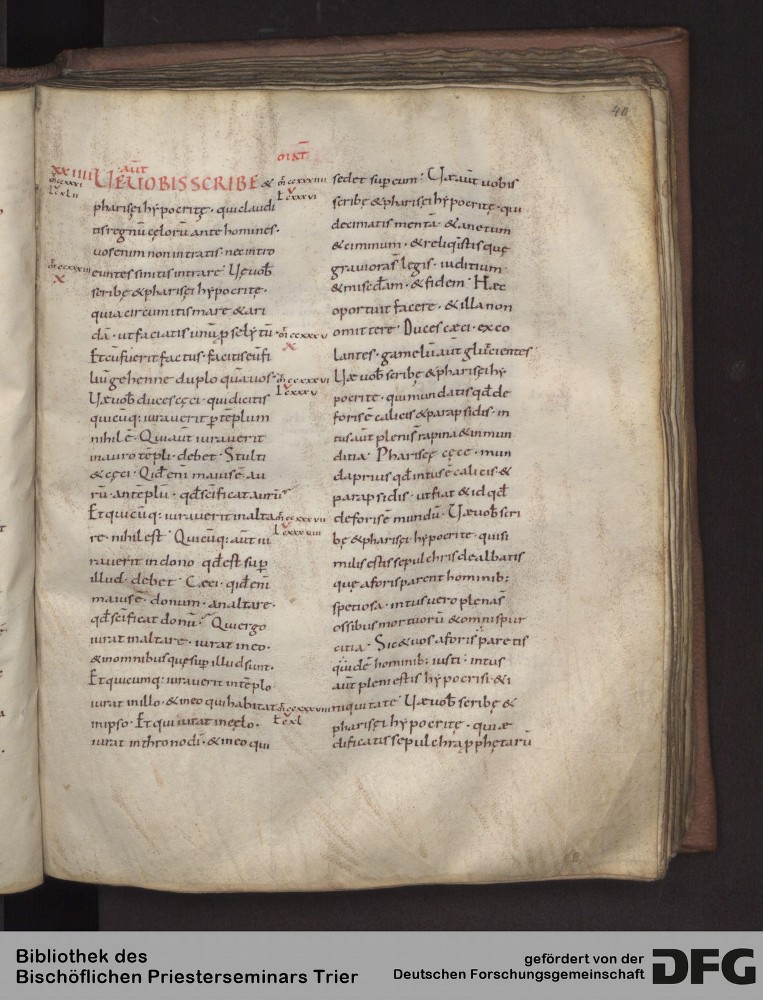 40
MAT
XXIIII
aūt
UE UOBIS SCRIBE &
pharisęi hypocritę · qui claudi
tis regnū cęlorū ante homines ·
uos enim non intratis · nec intro
euntes sinitis intrare · Uę uob̄
scribę & pharisęi hypocritę ·
quia circumitis mare & ari
dā · ut faciatis unū p̱selytū ·
Et cū fuerit factus · facitis eū fi
liū gehenne duplo quā uos ·
Uæ uob̄ duces cęci · qui dicitis
quicūq: iurauerit p̱ templum
nihil ē · Qui aūt iurauerit
in auro tēpli · debet · Stulti
& cęci · Qid enī maius ē · au
rū · an tēplū · qd̄ sc̄ificat aurū
Et quicūq: iurauerit in alta
re · nihil est · Quicūq: aūt iu
rauerit in dono qd̄ est sup̱
illud · debet · Cæci · qid enī
maius ē · donum · an altare ·
qd̄ sc̄ificat donū · Qui ergo
iurat in altare · iurat in eo ·
& in omnibus quę sup̱ illud sunt ·
Et quicumq: iurauerit in tēplo
iurat in illo · & in eo qui habitat
in ipso · Et qui iurat in cęlo ·
iurat in throno dī · & in eo qui
sedet sup̱ eum · Uæ aūt uobis
scribę & pharisęi hypocritę · qui
decimatis mentā · & anetum
& ciminum · & reliq̄stis quę
grauiora s̄ legis · iuditium
& mis̄cdam · & fidem · Hæc
oportuit facere · & illa non
omittere · Duces cæci · exco
lantes · gamelū aūt glutientes
Uæ uob̄ scribę & pharisęi hy
pocritę · qui mundatis qd̄ de
foris ē calicis & parapsidis · in
tus aūt pleni s̄ rapina & inmun
ditia · Pharisęę cęce · mun
da prius qd̄ intus ē calicis · &
parapsidis · ut fiat & id qd̄
deforis ē mundū · Uæ uob̄ scri
bę & pharisęi hypocritę · qui si
miles estis sepulchris dealbatis
quę aforis parent hominib:
spetiosa · intus uero plena s̄
ossibus mortuorū & omni spur
citia · Sic & uos aforis paretis
qidē hominib: iusti · intus
aūt pleni estis hypocrisi · & i
niquitate · Uæ uob̄ scribę &
pharisęi hypocritę · qui æ
dificatis sepulchra p̱phętarū
Bibliothek des
Bischöflichen Priesterseminars Trier
gefördert von der
Deutschen Forschungsgemeinschaft
DFG